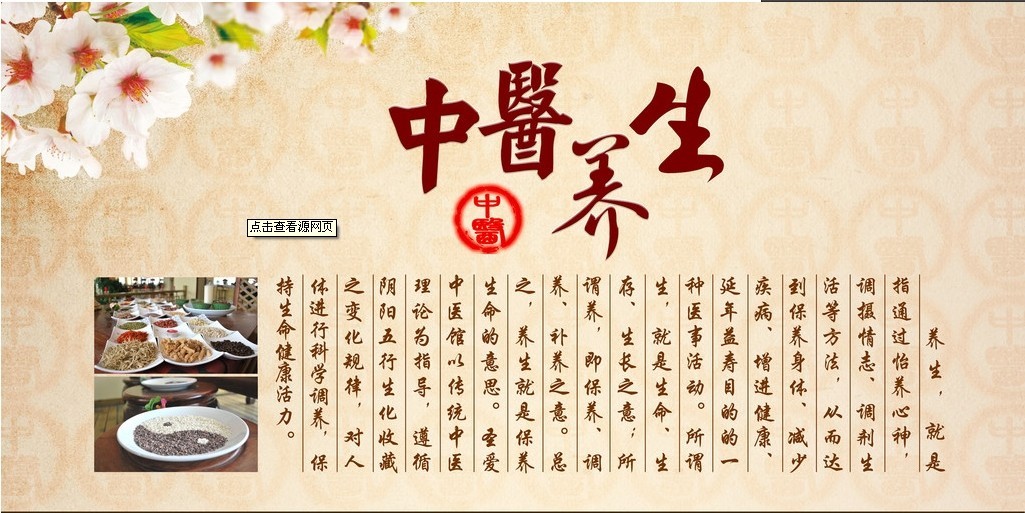 中醫养生
中醫
点击查看源网页
养生，就是
指通过怡养心神，
调摄情志、调剂生
活等方法，从而达
到保养身体、减少
疾病、增进健康、
延年益寿目的的一
种医事活动。所谓
生，就是生命、生
存、生长之意；所
谓养，即保养、调
养、补养之意。总
之，养生就是保养
生命的意思。圣爱
中医馆以传统中医
理论为指导，遵循
阴阳五行生化收藏
之变化规律，对人
体进行科学调养，保
持生命健康活力。